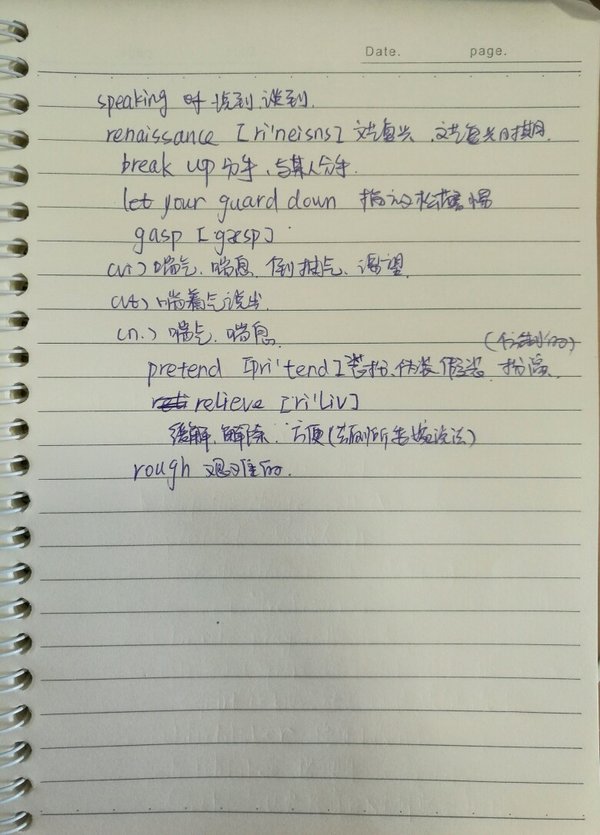 Date. page.
speaking of 说到 谈到.
renaissance [ri'neisns] 文艺复兴. 文艺复兴时期.
break up 分手、与某人分手.
let your guard down 放松警惕
gasp [gæsp]
(vi) 喘气、喘息、倒抽气、渴望.
(vt) 喘着气说出
(n.) 喘气、喘息.
pretend [pri'tend] 装扮、伪装 假装 扮演.
relieve [ri'liv]
缓解、解除、方便(去厕所委婉说法)
rough 艰难的.